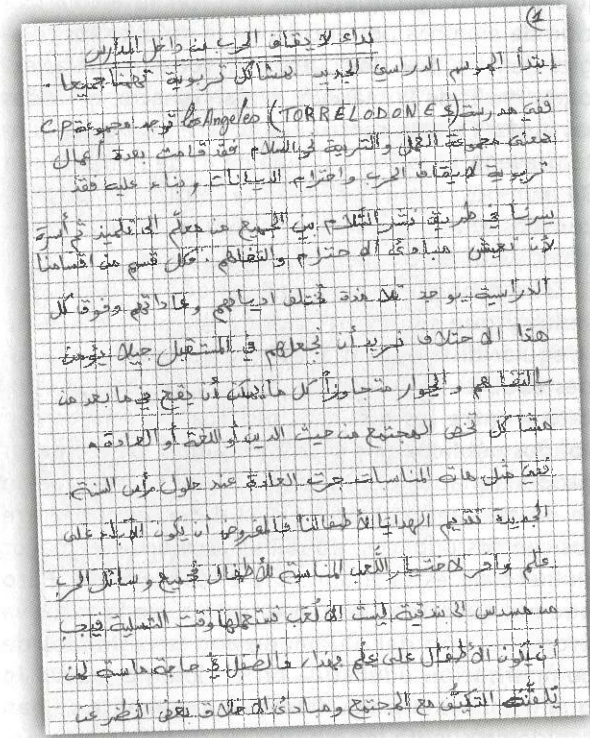 (1
نداء لإيقاف الحرب من داخل المدارس
يبتدأ الموسم الدراسي الجديد بمشاكل تربوية تهمنا جميعا.
ففي مدرسة Los Angeles (TORRELODONES) توجد مجموعة C.P
بمعنى مجموعة العمل والتربية في السلام فقد قامت بعدة أعمال
تربوية لإيقاف الحرب واحترام الديانات وبناء عليه فقد
سرنا في طريق نشر السلام بين الجميع من معلم إلى تلميذ ثم أسرة
لأننا نعيش مبادئ الاحترام والتفاهم. فكل قسم من أقسامنا
الدراسية يوجد تلامذة تختلف أديانهم وعاداتهم وفوق كل
هذا الاختلاف نريد أن نجعلهم في المستقبل جيلا يؤمن
بالتفاهم والحوار متجاوزاً كل ما يمكن أن يقع فيما بعد من
مشاكل تخص المجتمع من حيث الدين أو اللغة أو العادة.
ففي مثل هاته المناسبات جرت العادة عند حلول رأس السنة
الجديدة تقديم الهدايا لأطفالنا فالمفروض أن يكون الآباء على
علم وافر لاختيار اللعب المناسبة للأطفال فجميع وسائل الحرب
من مسدس إلى بندقية ليست ألعب نستعملها وقت التسلية فيجب
أن يكون الأطفال على علم بهذا، فالطفل في حاجة ماسة لمن
يلقنه التكيف مع المجتمع ومبادئ الأخلاق بغض النظر عن